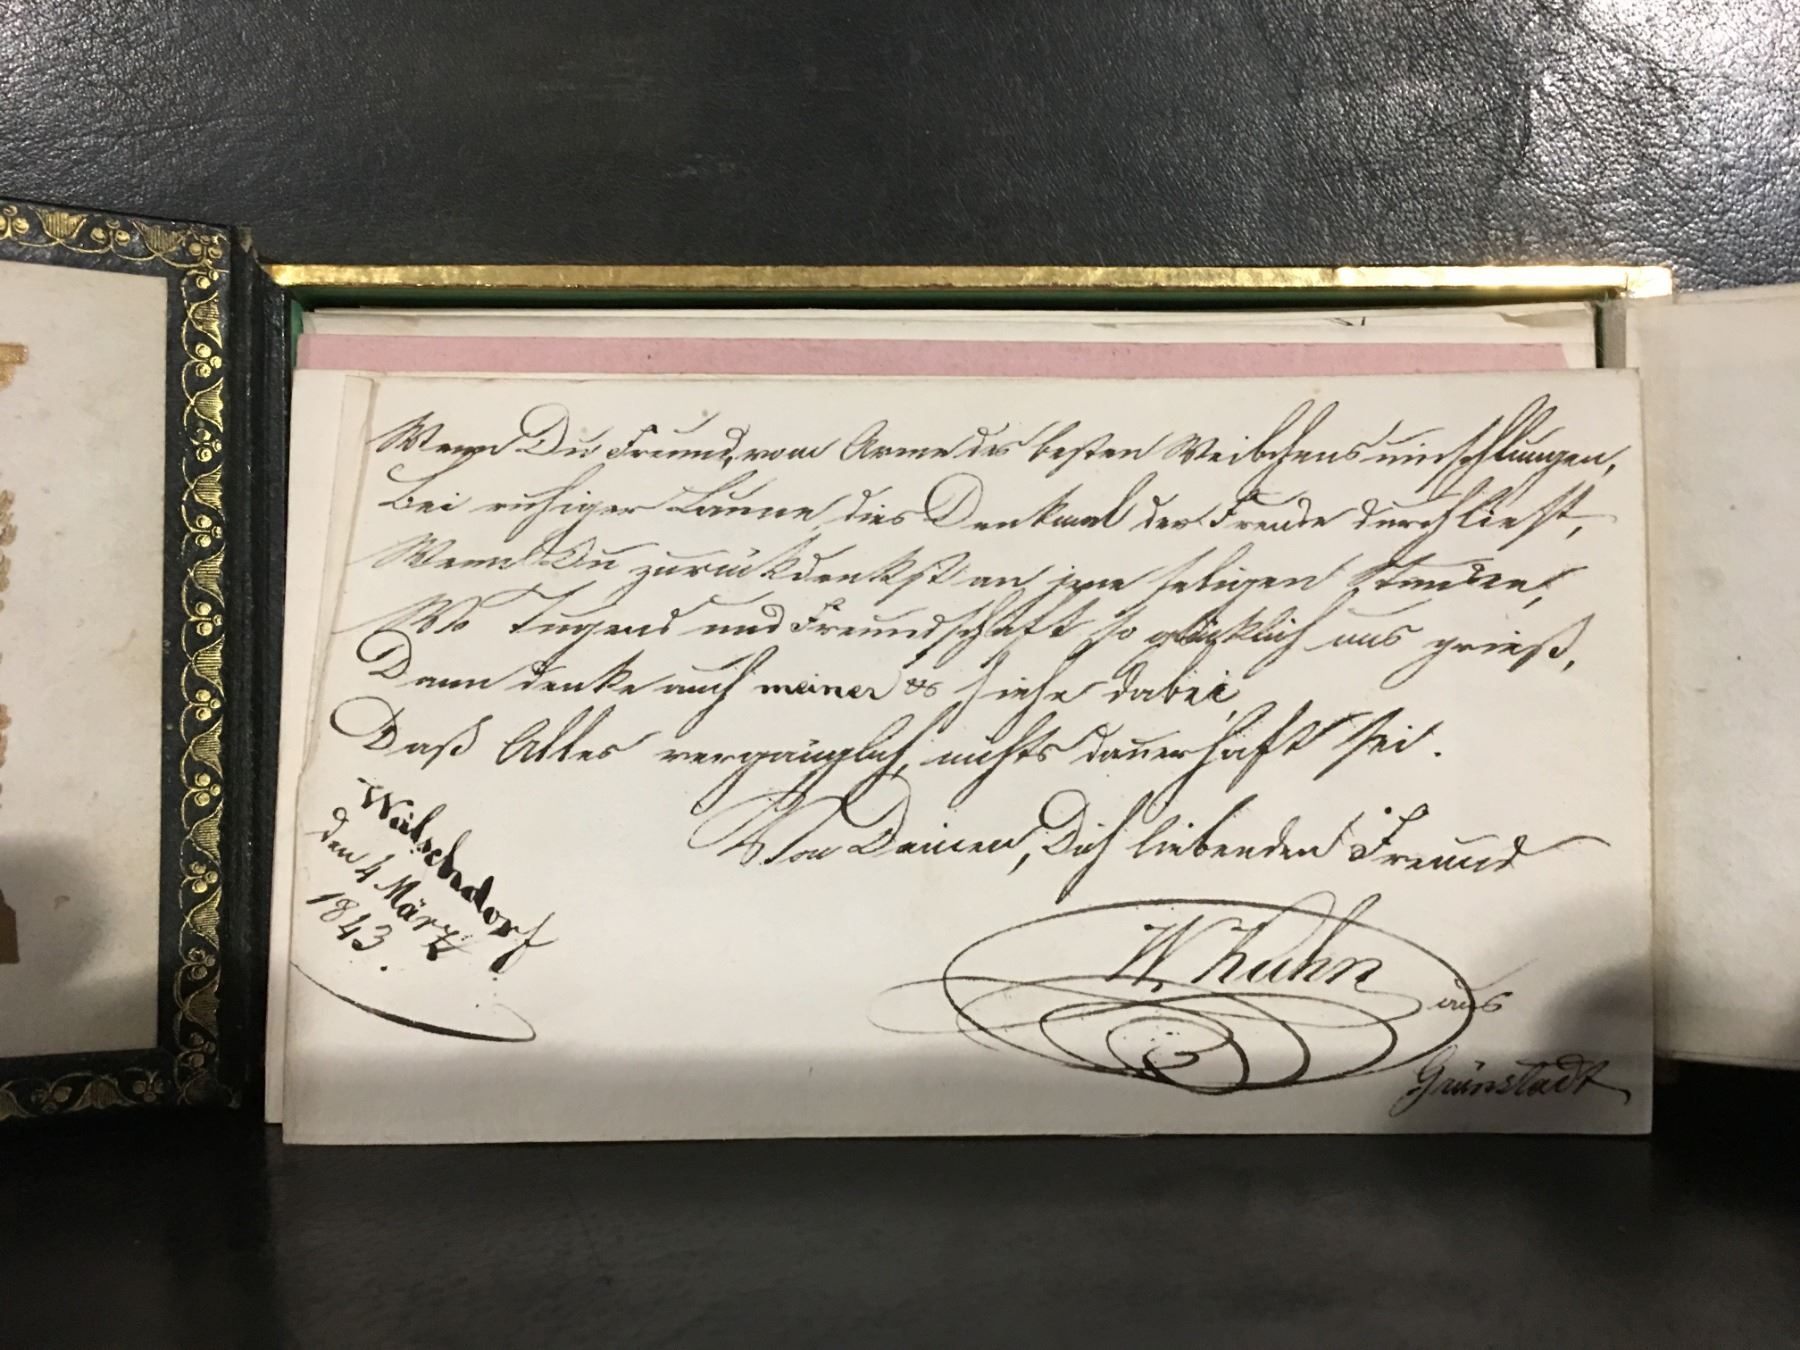 Wenn Du Freund, vom Arme des besten Weibchens umschlungen,
Bei ruhiger Laune, dies Denkmal der Freude durchliest,
Wenn Du zurückdenkst an jene seligen Stunden,
Wo Tugend und Freundschaft so glücklich uns pries,
Dann denke auch meiner & siehe dabei,
Daß Alles vergänglich, nichts dauerhaft sei.
Von Deinen, Dich liebenden Freund
den 4 März
1843.
W. Kuhn
aus
Grünstadt